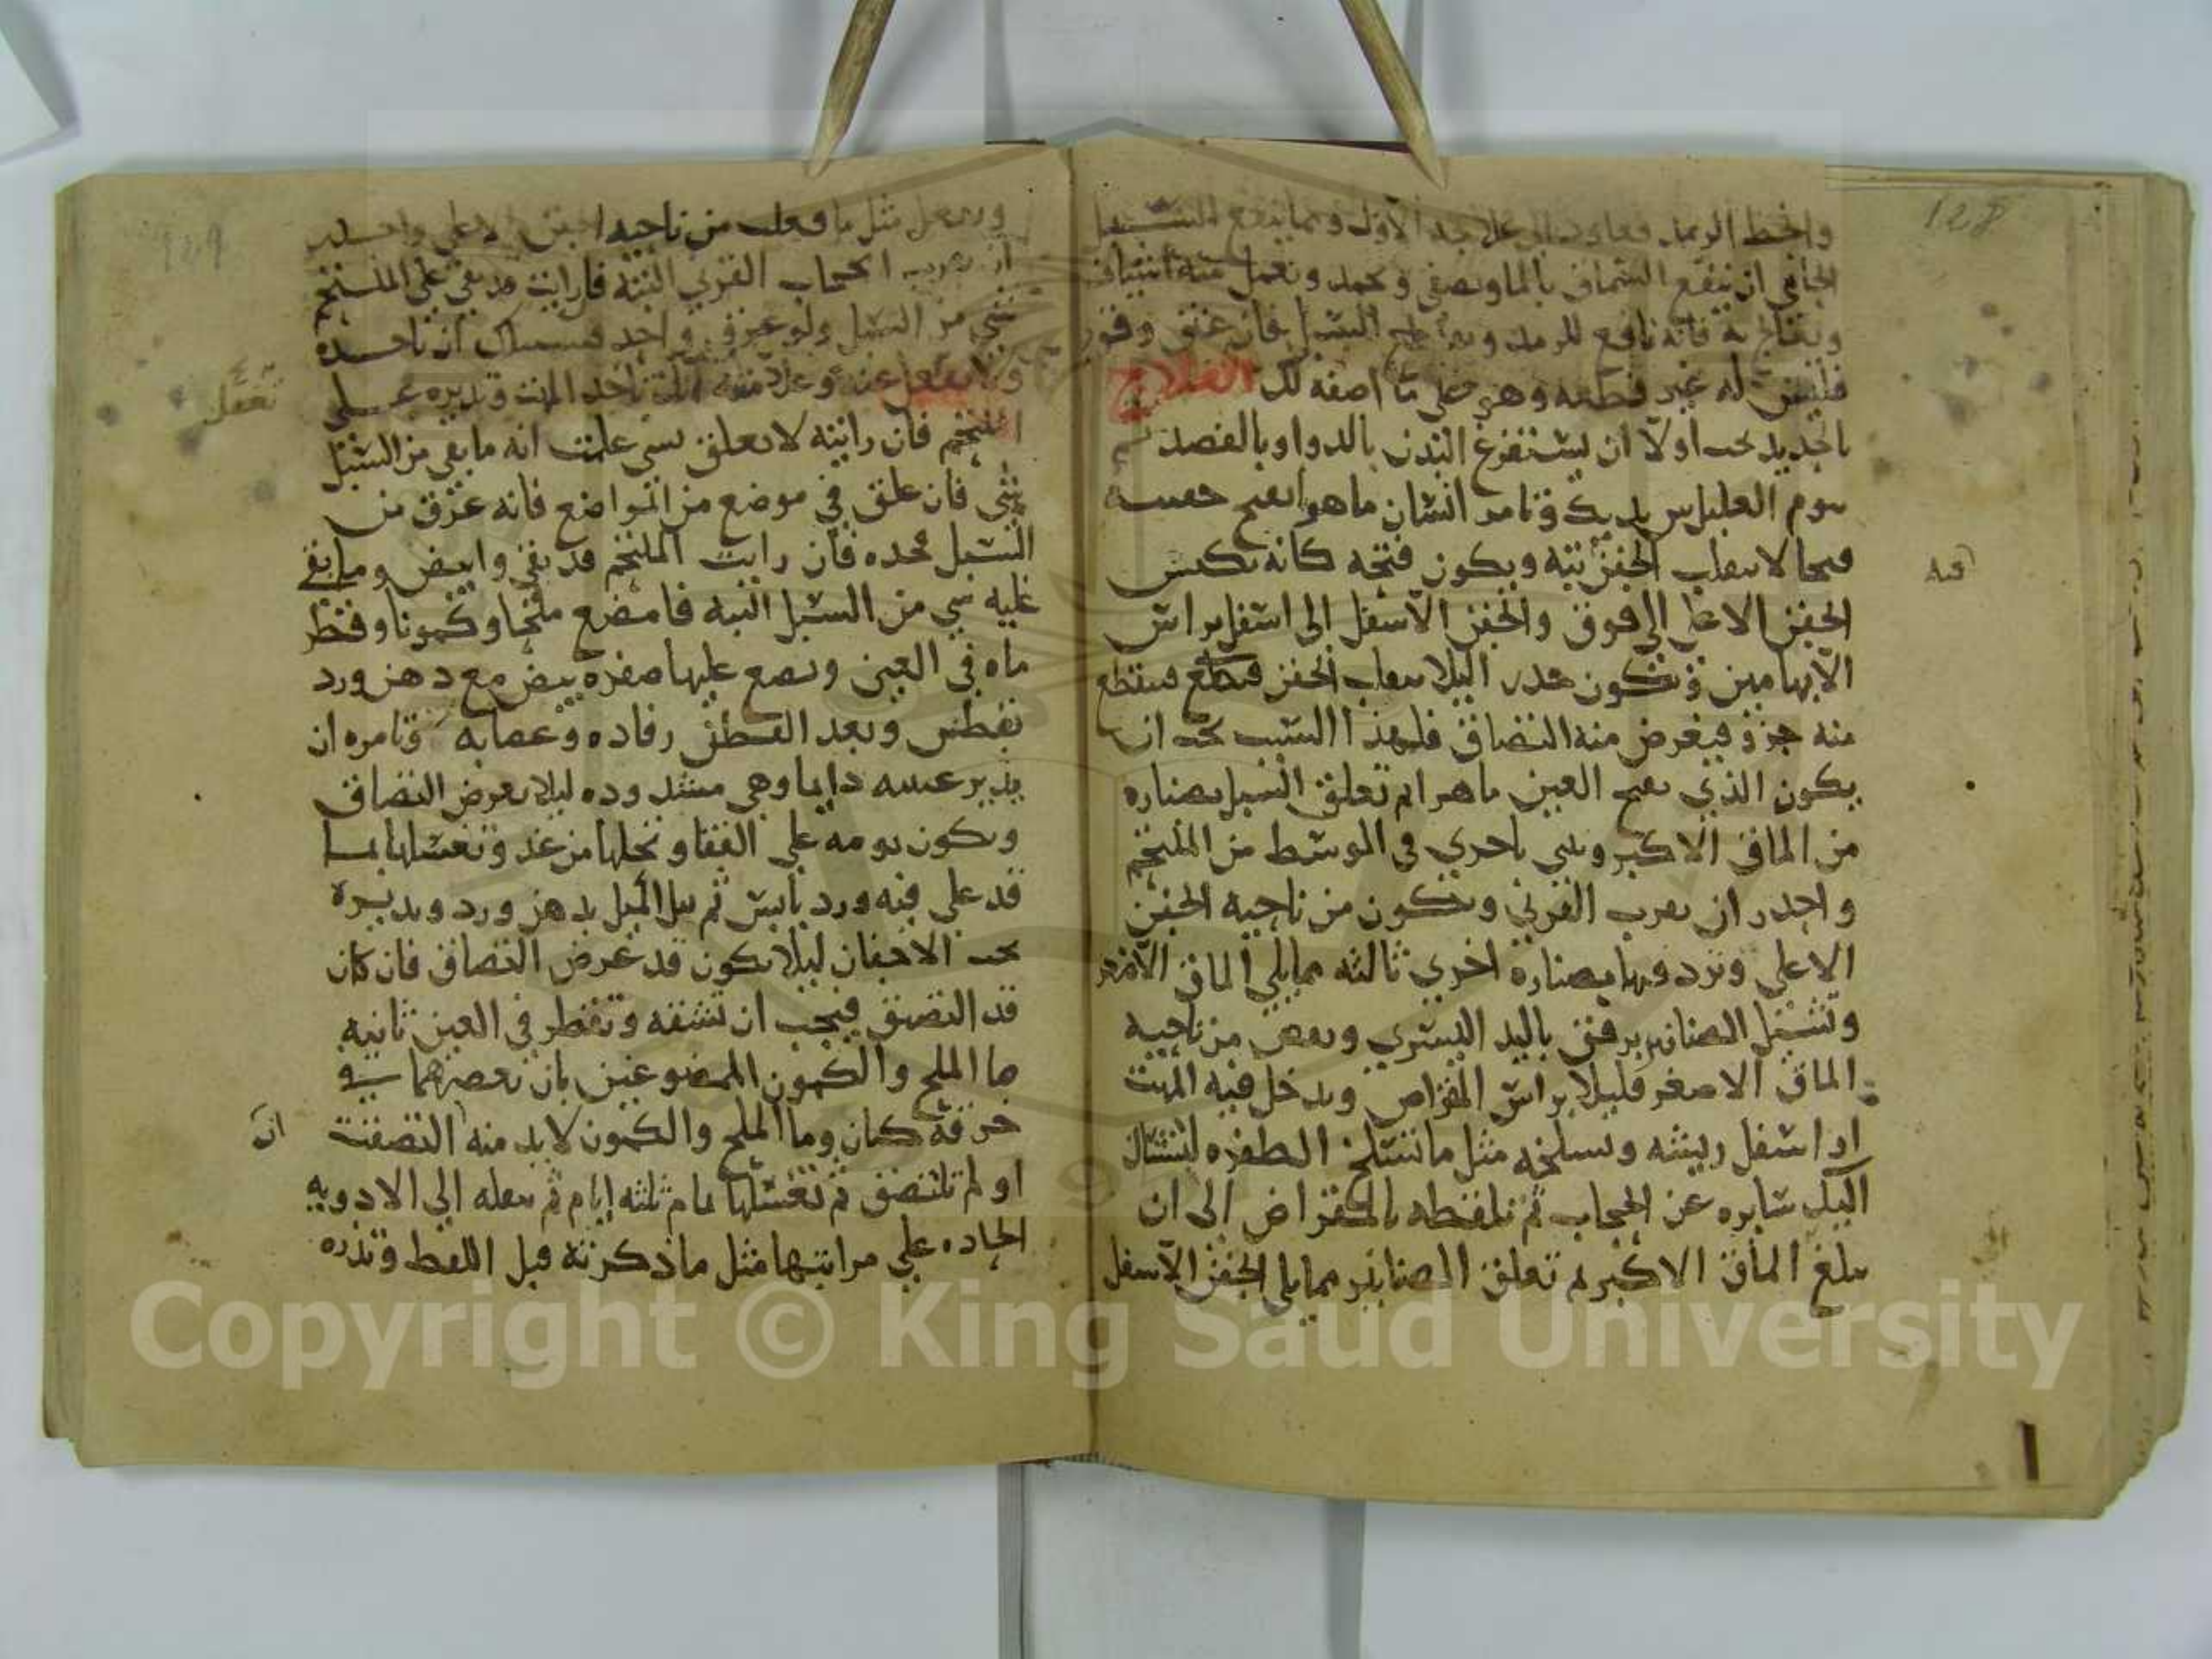 128
وانحط الرمد فعاود الى علاجه الاول ومما ينفع السبل
الجافي ان ينقع السماق بالما ويصفى ويجمد ويعمل منه اشياف
ويعالج به فانه نافع للرمد السبل فان عتق وقوي
فليس له غير قطعه وهو على ما اصفه لك العلاج
بالحديد يجب اولا ان يستفرغ البدن بالدوا وبالفصد ثم
ينوم العليل بين يديك وتامر انسان ماهر ايفتح عينيه
فتحا لا ينقلب الجفن البته ويكون فتحه كانه يكبس
الجفن الاعلى الى فوق والجفن الاسفل الى اسفل براس
الابهامين ويكون حذر اليلا ينقلب الجفن فينقطع
منه جزو فيعرض منه التصاق فلهذا السبب يجب ان
يكون الذي يفتح العين ماهرا ثم تعلق السبل بصناره
من الماق الاكبر وثني باخرى في الوسط من الملتحم
واحذر ان يقرب القرني ويكون من ناحيه الجفن
الاعلى وتزد فيها بصناره اخرى ثالثه مما يلي الماق الاصغر
وتشيل الصنانير برفق باليد اليسرى ويقص من ناحيه
الماق الاصغر قليلا براس المقراص ويدخل فيه المهت
او اسفل ريشه وتسلخه مثل ما تسلخ الظفره لينشال
اليك سايره عن الحجاب ثم تلقطه بالمقراض الى ان
يبلغ الماق الاكبر ثم تعلق الصنانير مما يلي الجفن الاسفل
فيه
129
ويفعل مثل ما فعلت من ناحيه الجفن الاعلى واحذر
ان يقرب الحجاب القرني البته فان رايت قد بقي على الملتحم
شي من السبل ولو عرق واحد فسبيلك ان تاخذه
ولا تغفل عنه وعلامته انك تاخذ المهت وتديره على
الملتحم فان رايته لا يعلق بشي علمت انه ما بقي من السبل
شي فان علق في موضع من المواضع فانه عرق من
السبل فخذه فان رايت الملتحم قد نقي وابيض وما بقي
عليه شي من السبل البته فامضغ ملحا وكمونا وقطر
ماه في العين وتضع عليها صفرة بيض مع دهن ورد
بقطن وبعد القطن رفاده وعصابه وتامره ان
يدير عينيه دايما وهي مشدوده ليلا يعرض التصاق
ويكون نومه على القفا وتحلها من غد وتغسلها بما
قد غلي فيه ورد يابس ثم بل الميل بدهن ورد وديره
تحت الاجفان ليلا يكون قد عرض التصاق فان كان
قد التصق فيجب ان تشقه وتقطر في العين ثانيه
ما الملح والكمون الممضوغين بان تعصرهما في
خرقة كتان وما الملح والكمون لا بد منه التصقت
او لم تلتصق ثم تغسلها بما م ثلثه ايام ثم تنقله الى الادويه
الحاده على مراتبها مثل ما ذكرته قبل اللقط وتذره
تغفل
ان
Copyright © King Saud University